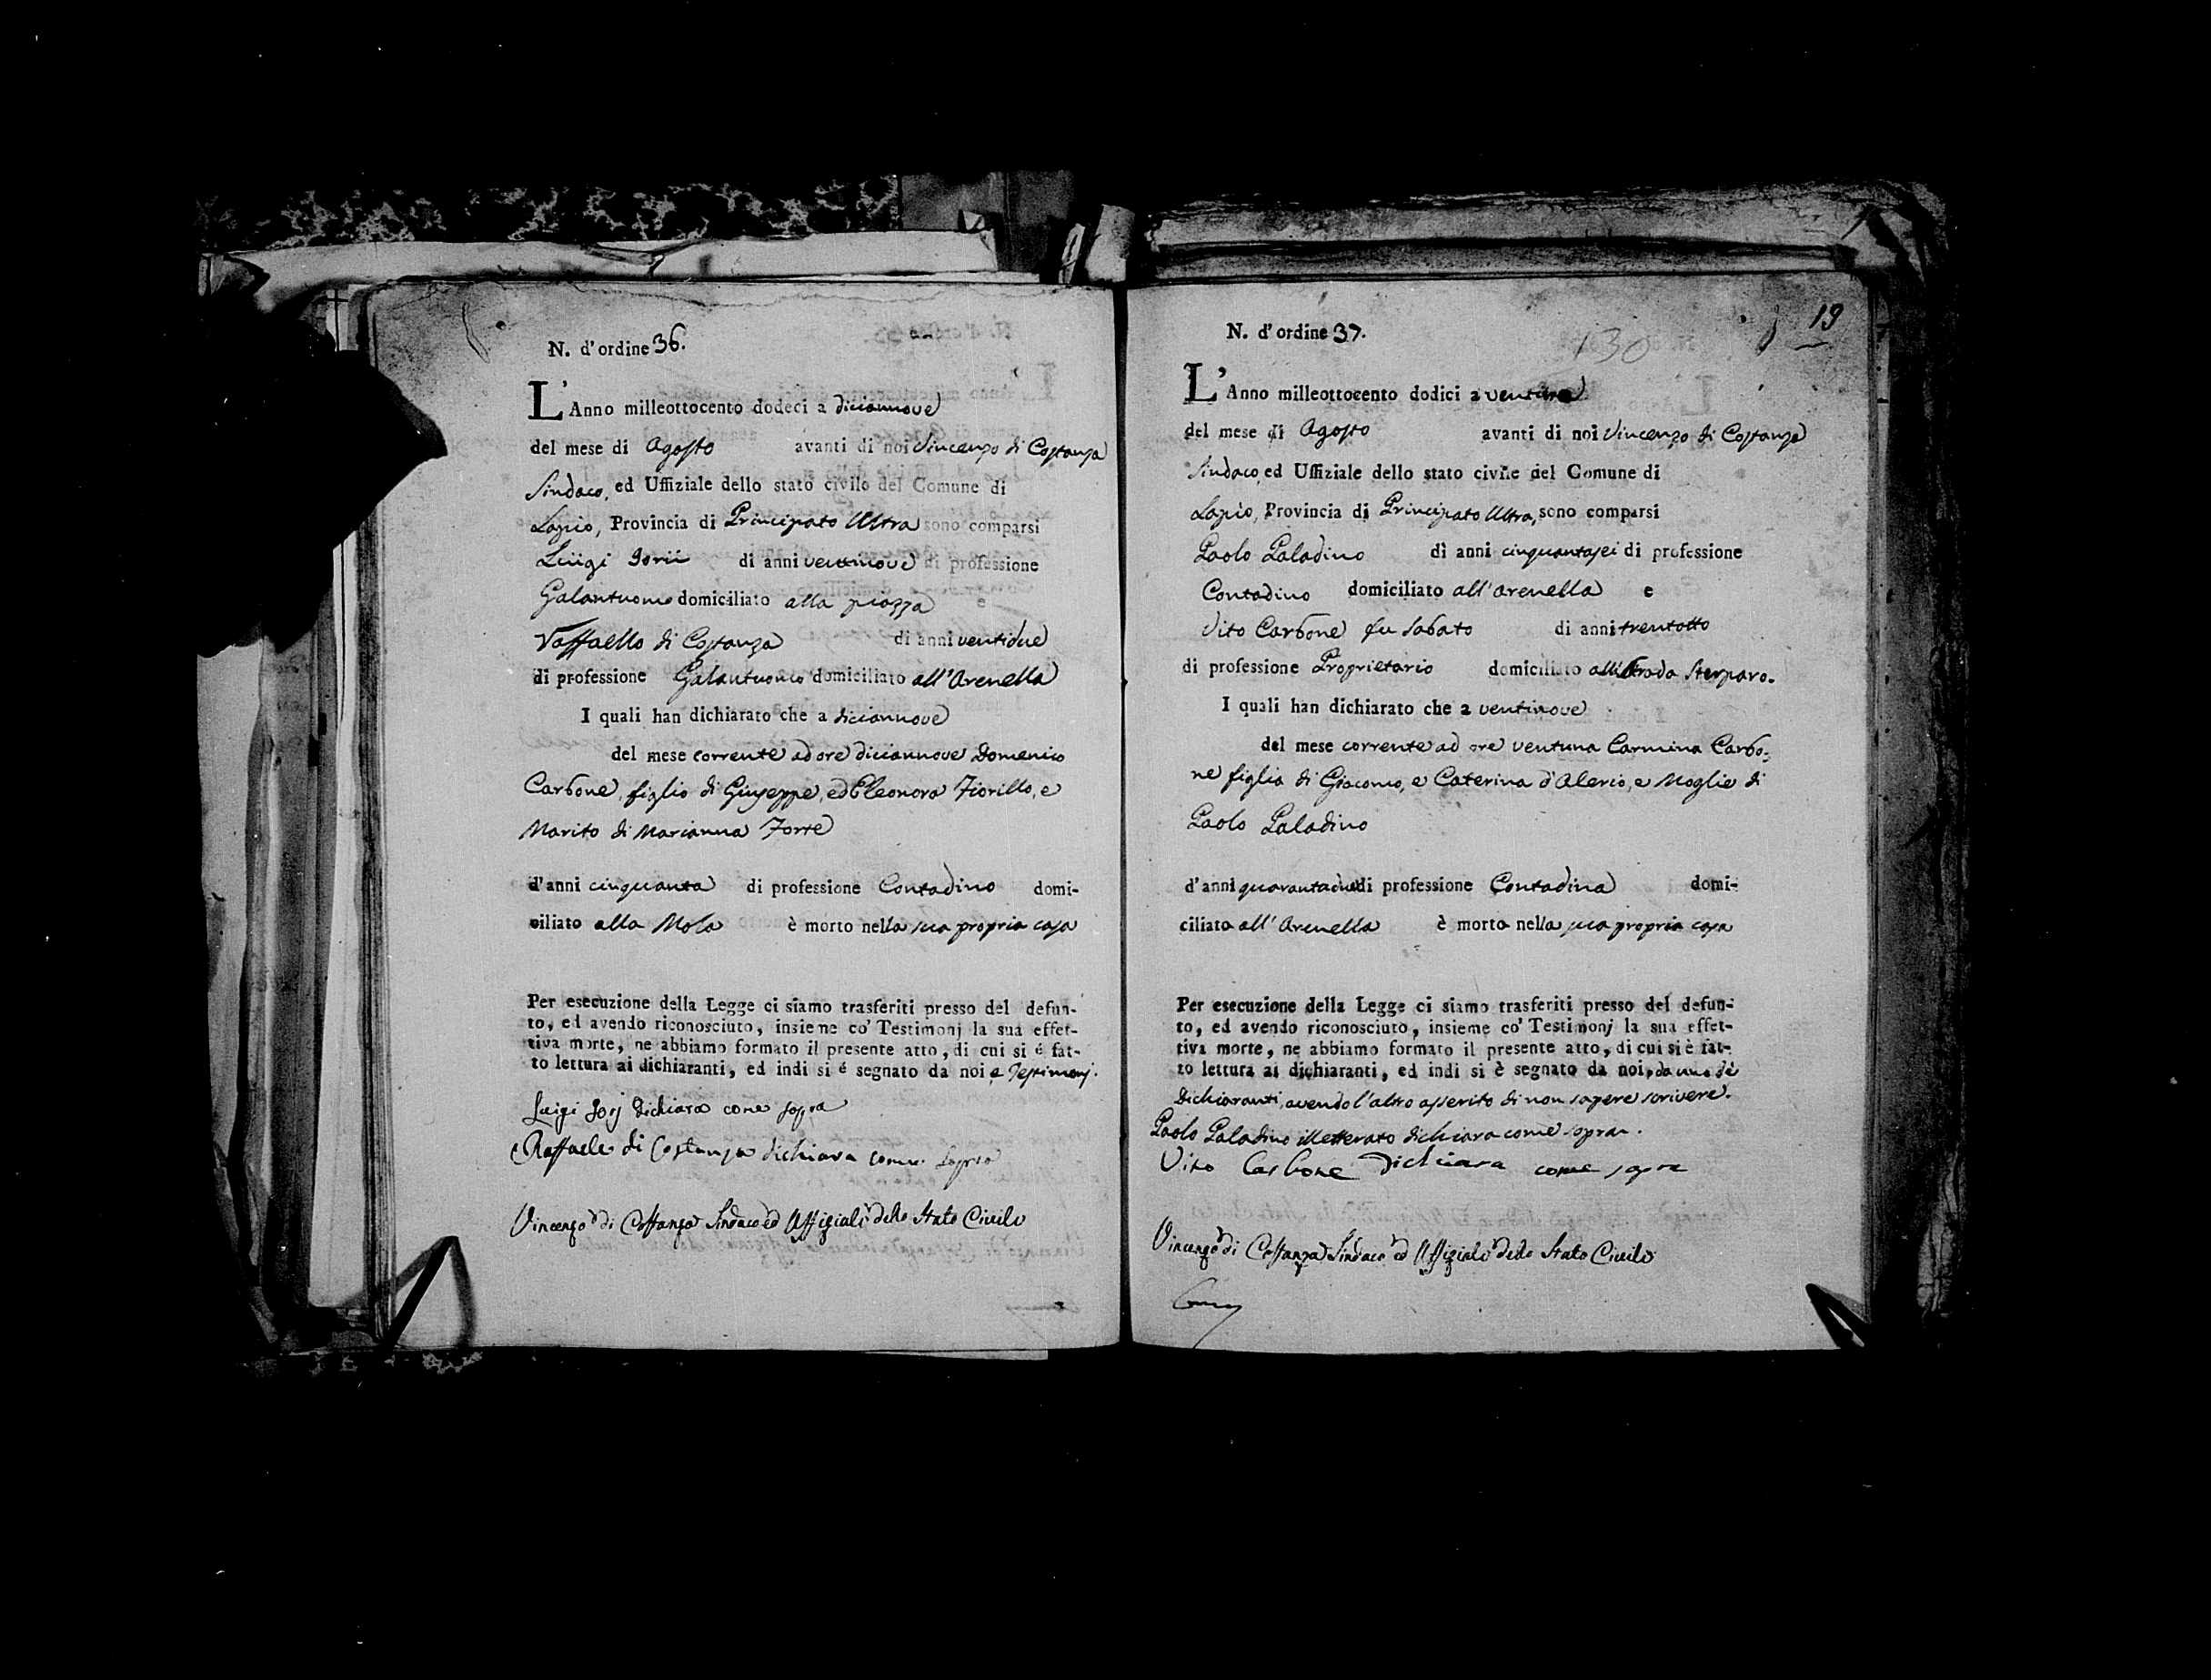 N. d'ordine 36.
L'Anno milleottocento dodeci a diciannove
del mese di Agosto avanti di noi Vincenzo di Costanza
Sindaco, ed Uffiziale dello stato civile del Comune di
Lapio, Provincia di Principato Ultra sono comparsi
Luigi Jorii di anni ventinove di professione
Galantuomo domiciliato alla piazza e
Raffaello di Costanza di anni ventidue
di professione Galantuomo domiciliato all'Arenella
I quali han dichiarato che a diciannove
del mese corrente ad ore diciannove Domenico
Carbone, figlio di Giuseppe, ed Eleonora Fiorillo, e
Marito di Marianna Forte
d'anni cinquanta di professione Contadino domi-
ciliato alla Mola è morto nella sua propria casa
Per esecuzione della Legge ci siamo trasferiti presso del defun-
to, ed avendo riconosciuto, insieme co' Testimonj la sua effet-
tiva morte, ne abbiamo formato il presente atto, di cui si é fat-
to lettura ai dichiaranti, ed indi si é segnato da noi e Testimonj.
Luigi Jorj dichiara come sopra
Raffaele di Costanza dichiara come sopra
Vincenzo di Costanza Sindaco ed Uffiziale dello Stato Civile
19
130
N. d'ordine 37.
L'Anno milleottocento dodici a
del mese di Agosto avanti di noi Vincenzo di Costanza
Sindaco, ed Uffiziale dello stato civile del Comune di
Lapio, Provincia di Principato Ultra, sono comparsi
Paolo Paladino di anni cinquantasei di professione
Contadino domiciliato all'Arenella e
Vito Carbone fu Sabato di anni trentotto
di professione Proprietario domiciliato strada Sterparo.
I quali han dichiarato che a ventinove
del mese corrente ad ore ventuna Carmina Carbo-
ne figlia di Giacomo, e Caterina d'Alerio, e Moglie di
Paolo Paladino
d'anni quarantadue di professione Contadina domi-
ciliata all'Arenella è morta nella sua propria casa
Per esecuzione della Legge ci siamo trasferiti presso del defun-
to, ed avendo riconosciuto, insieme co' Testimonj la sua effet-
tiva morte, ne abbiamo formato il presente atto, di cui si è fat-
to lettura ai dichiaranti, ed indi si è segnato da noi, da uno de'
Dichiaranti, avendo l'altro asserito di non sapere scrivere.
Paolo Paladino illetterato dichiara come sopra.
Vito Carbone dichiara come sopra
Vincenzo di Costanza Sindaco ed Uffiziale dello Stato Civile